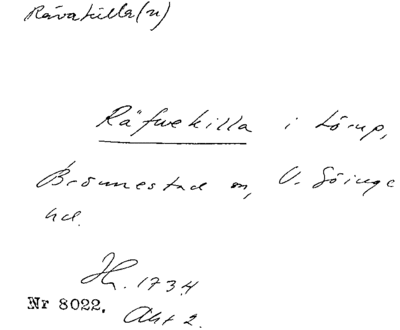 Rävakilla(n)
Räfwekilla i Lörup,
Brönnestad sn, V. Göinge
hd.
Jh. 1734
Nr 8022. Akt 2.